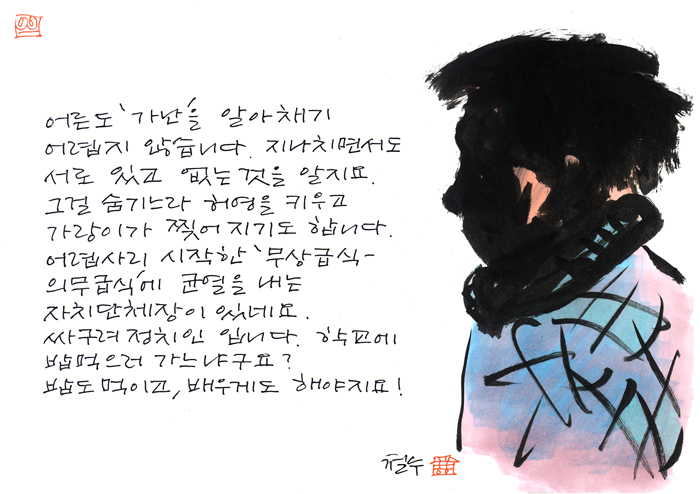 어른도 '가난'을 알아채기
어렵지 않습니다. 지나치면서도
서로 있고 없는것을 알지요.
그걸 숨기느라 허영을 키우고
가랑이가 찢어지기도 합니다.
어렵사리 시작한 '무상급식-
의무급식'에 균열을 내는
자치단체장이 있네요.
싸구려정치인 입니다. 학교에
밥먹으러 가느냐구요?
밥도 먹이고, 배우게도 해야지요!
철수